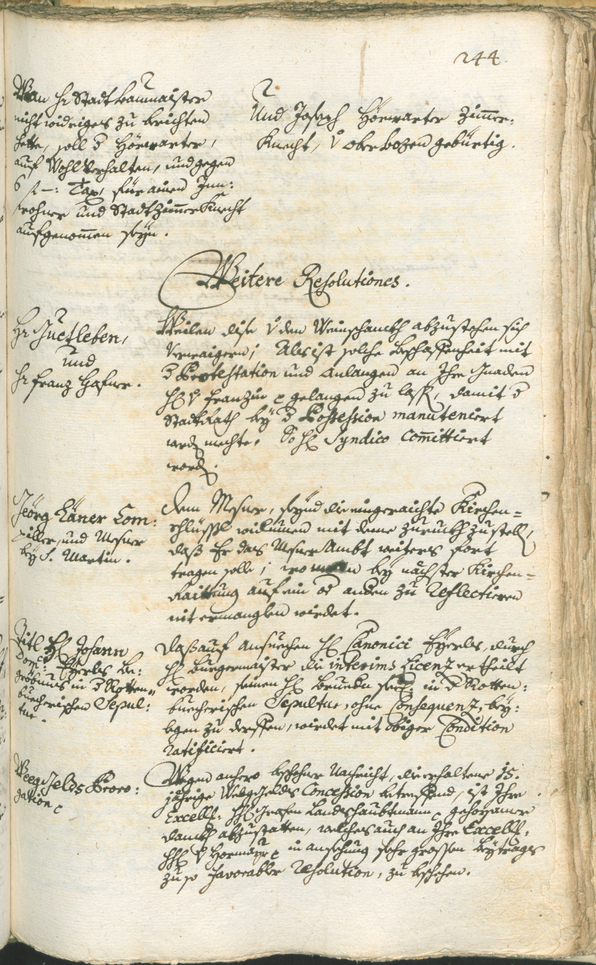 244.
Wan Hr Stadtbaumaister
nicht widriges zu berichten
hette, soll d Hörwarter,
auf Wohlverhalten, und gegen
6 f —: Tax, für ainen Inn:
wohner und Stadtzimmer Knecht
aufgenommen seyn.
2.
Und Joseph Hörwarter Zimmer:
Knecht, v oberbozen gebürtig.
Weitere Resolutiones.
Hr Guetleben,
und
Hr Franz Hafner.
Weilen dise v dem Weinschankh abzustehen sich
verwaigern; Als ist solche beschaffenheit mit
d Protestation und Anlangen an Ihre Gnaden
H v Franzin gelangen zu lass, damit d
Stadtrath bey d Possession manuteniert
werd mechte. So H Syndico committiert
word.
Jeorg Zäner Com:
und Mesner
bey S. Martin.
Dem Mesner, seynd die eingeraichte Kirchen=
schlüssl widerumen mit deme zuruckhzustell,
daß Er das Mesner Ambt weiters fort
tragen solle; wo man bey nächster Kirchen=
Raittung auf ein od anden zu reflectieren
nit ermanglen wirdet.
Titl H Johann
Dom: Eyerls be:
gröbnus in d Rotten=
buecherischen Sepul:
tur.
Daß auf ansuechen H Canonici Eyerls, durch
H burgermaister die interims Licenz ertheilt
worden, seinen H bruedern seel in d Rotten:
buecherischen Sepultur, ohne Consequenz, bey:
legen zu derffen, wirdet mit obiger Condition
ratificiert.
Weeg Gelds Proro:
gation
Wegen anhero beschehner Nachricht, die erhaltene 15.
jährige Weeg Gelds Concession betreffend, ist Ihro
Excell: H Grafen Landshaubtmann gehorsamen
Dankh abzustatten, welches auch an Ihre Excell:
H v Hormayr in ansehung sehr grossen beytrags
zu so favorabler resolution, zu beschehen.